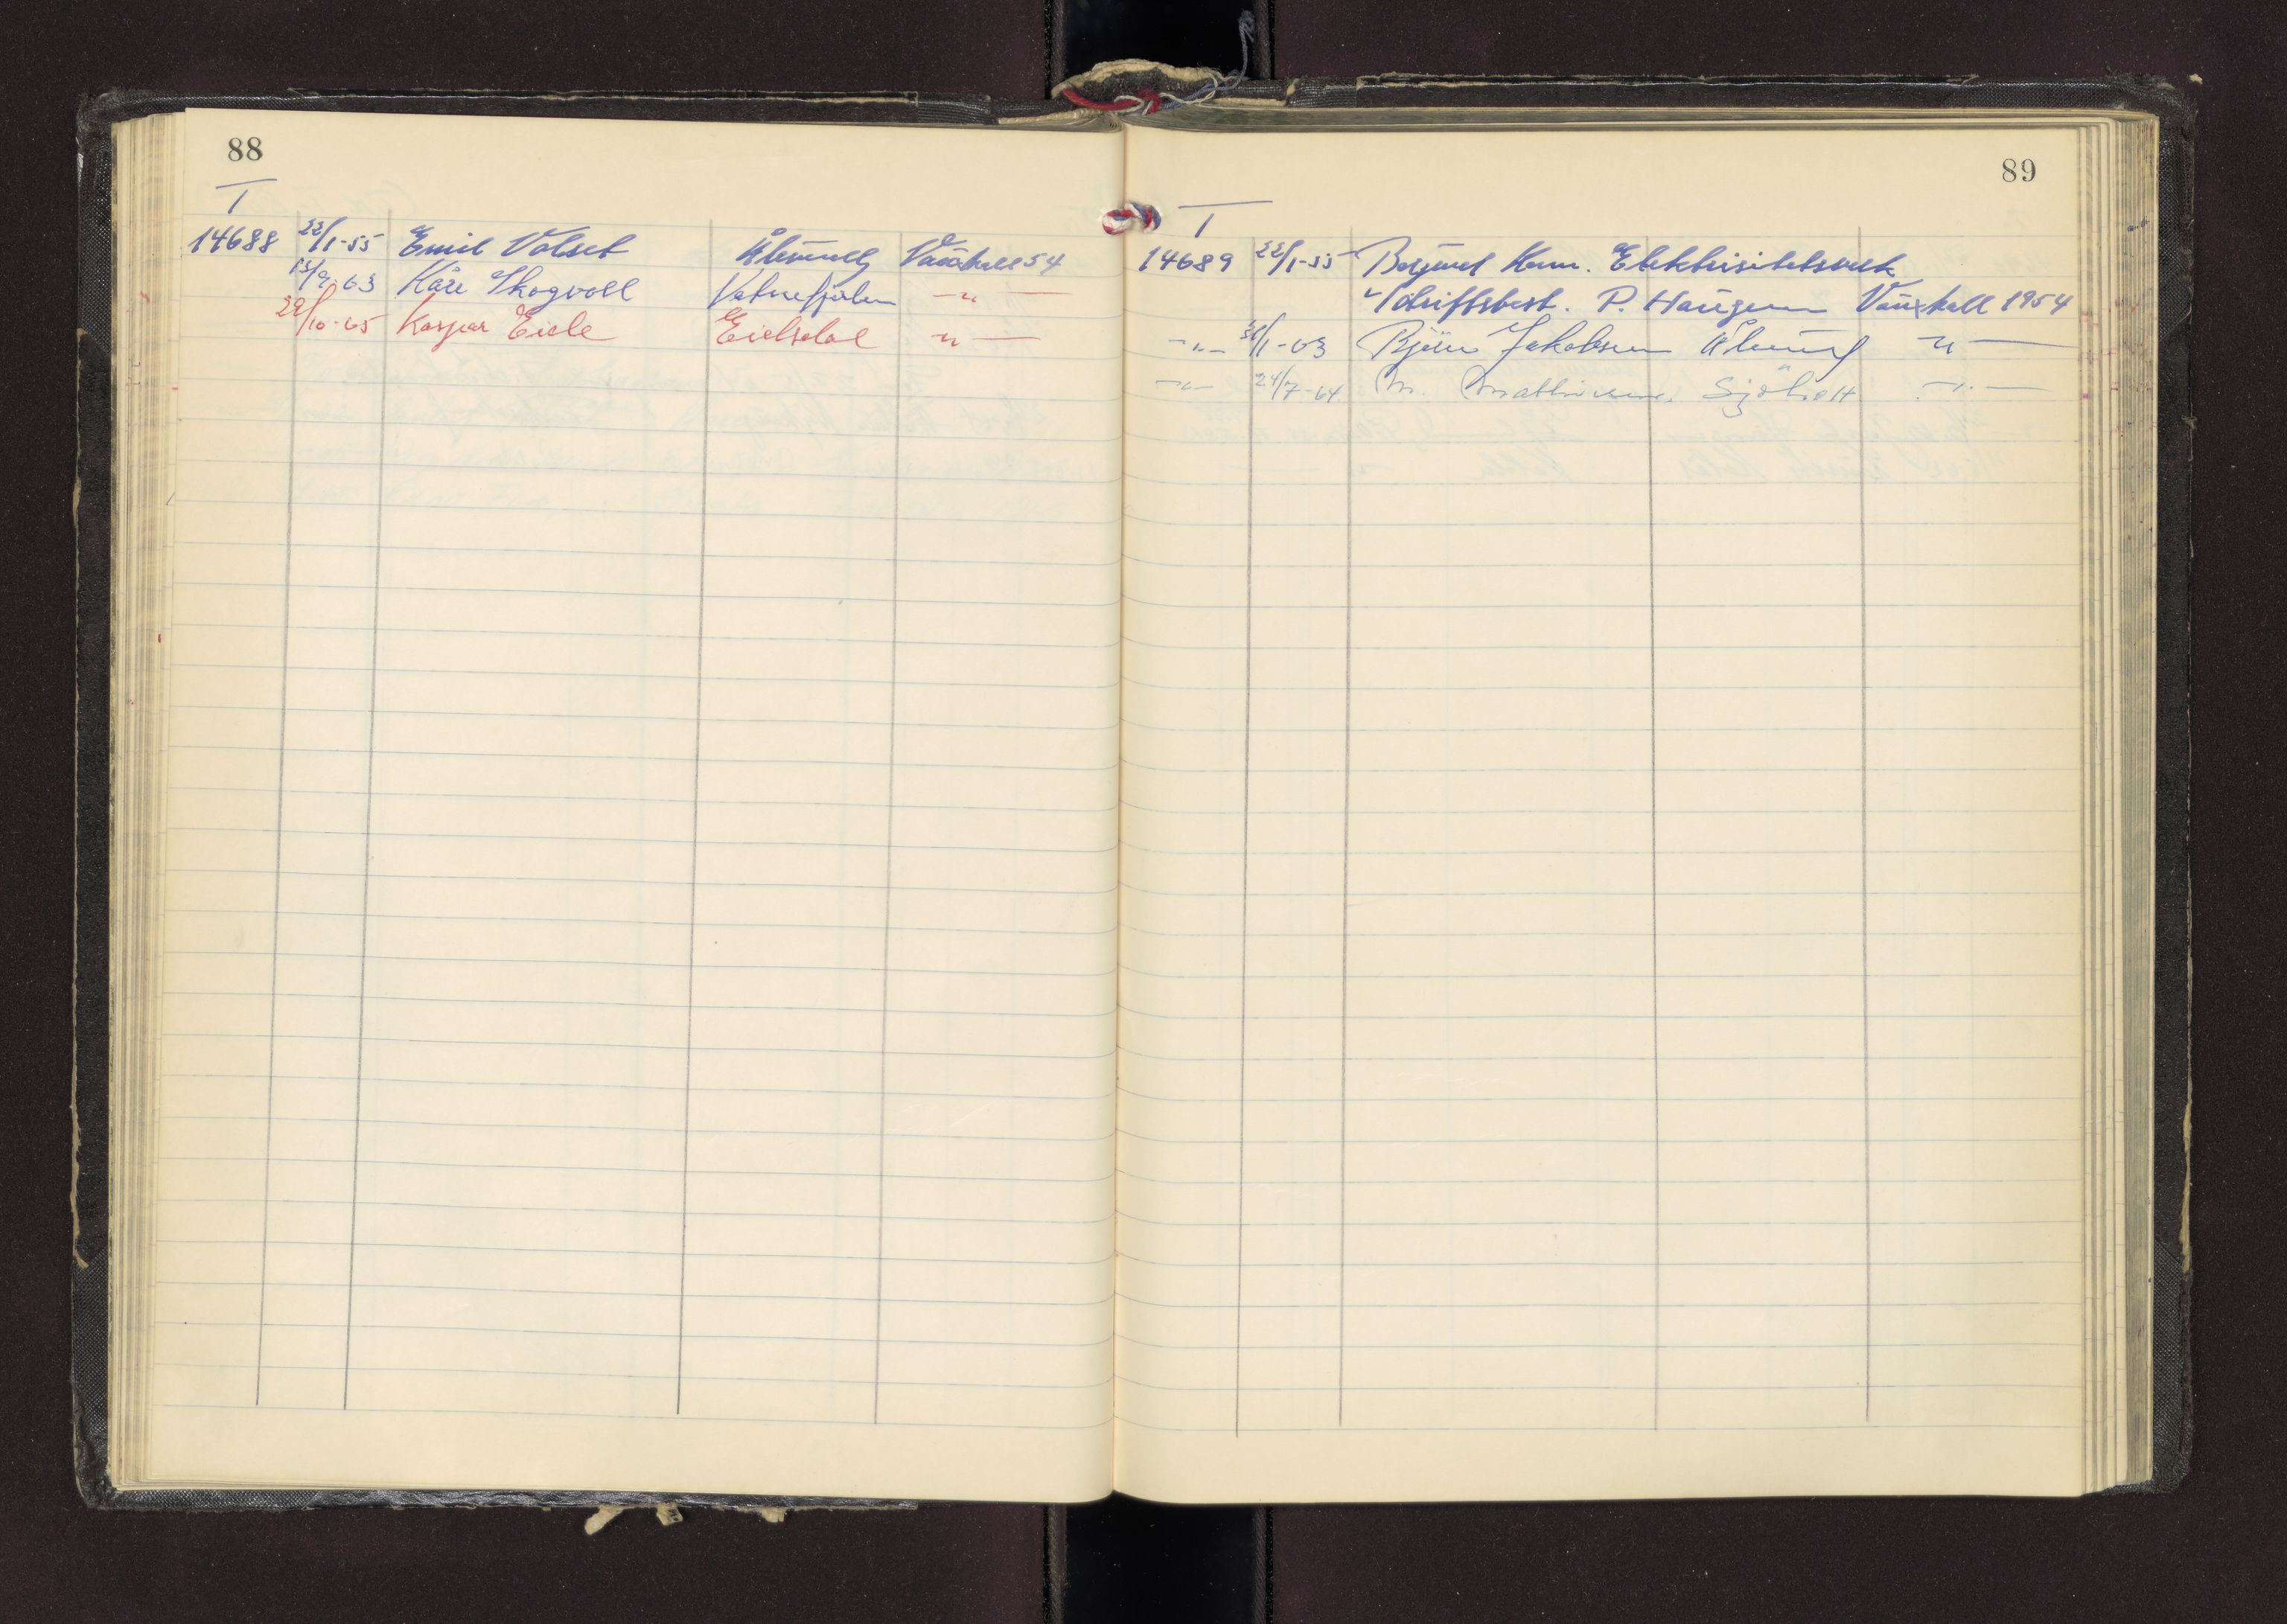 88
T
14688 22/1-55 Emil Valset Ålesund Vauxhall 54
13/9-63 Kåre Skogvoll Vatnefjorden -"-
29/10-65 Kaspar Eide Eidsdal -"-
89
T
14689 22/1-55 Borgund Kom. Elektrisitetsverk
v/driftsbest. P. Haugen Vauxhall 1954
-"- 31/1-63 Bjørn Jakobsen Ålesund -"-
-"- 24/7-64 M. Sjøholt -"-